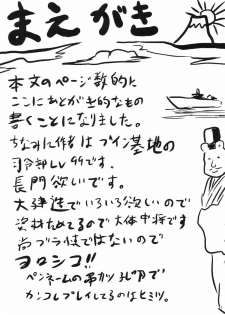 まえがき
本文のページ数的に
ここにあとがき的なもの
書くことになりました。
ちなみに作者はブイン基地の
司令部Lv99です。
長門欲しいです。
大建造でいろいろ欲しいので
資材ためてるので大体中将です
尚ブラ鎮ではないので
ヨロシコ!!
ペンネームの
カンコレプレイしてるのはヒミツ。